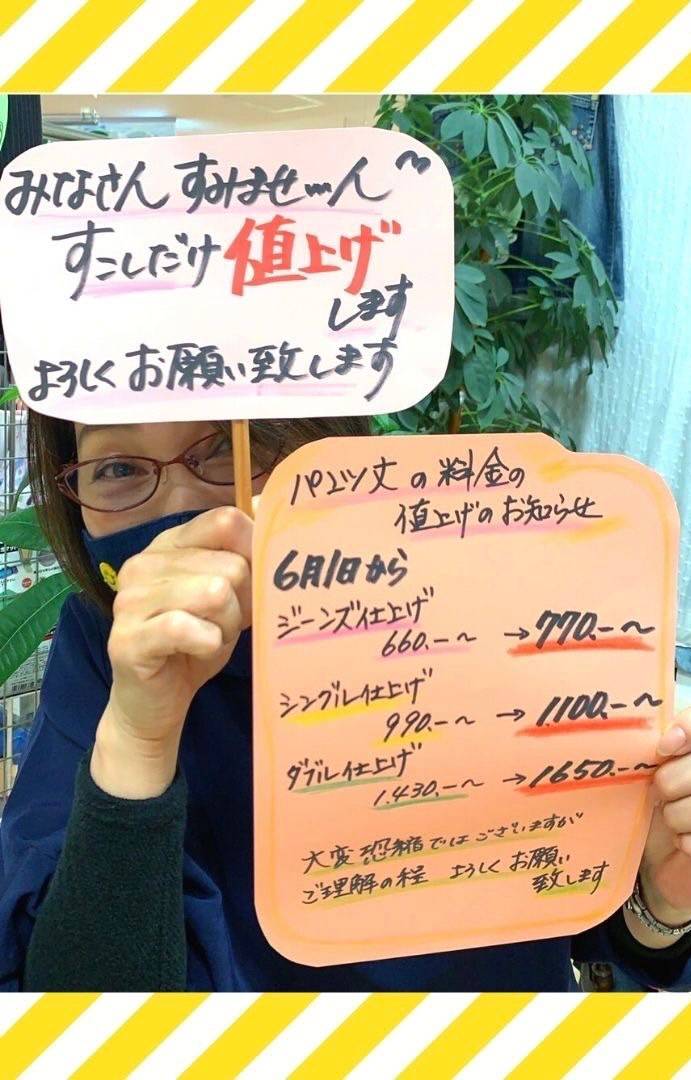 みなさん すみませ〰ん〜
すこしだけ 値上げ
します
よろしく お願い致します
パンツ丈の料金の
値上げのお知らせ
6月1日から
ジーンズ仕上げ
660.-〜 → 770.-〜
シングル仕上げ
990.-〜 → 1.100.-〜
ダブル仕上げ
1.430.-〜 → 1650.-〜
大変恐縮ではございますが
ご理解の程 よろしく お願い
致します